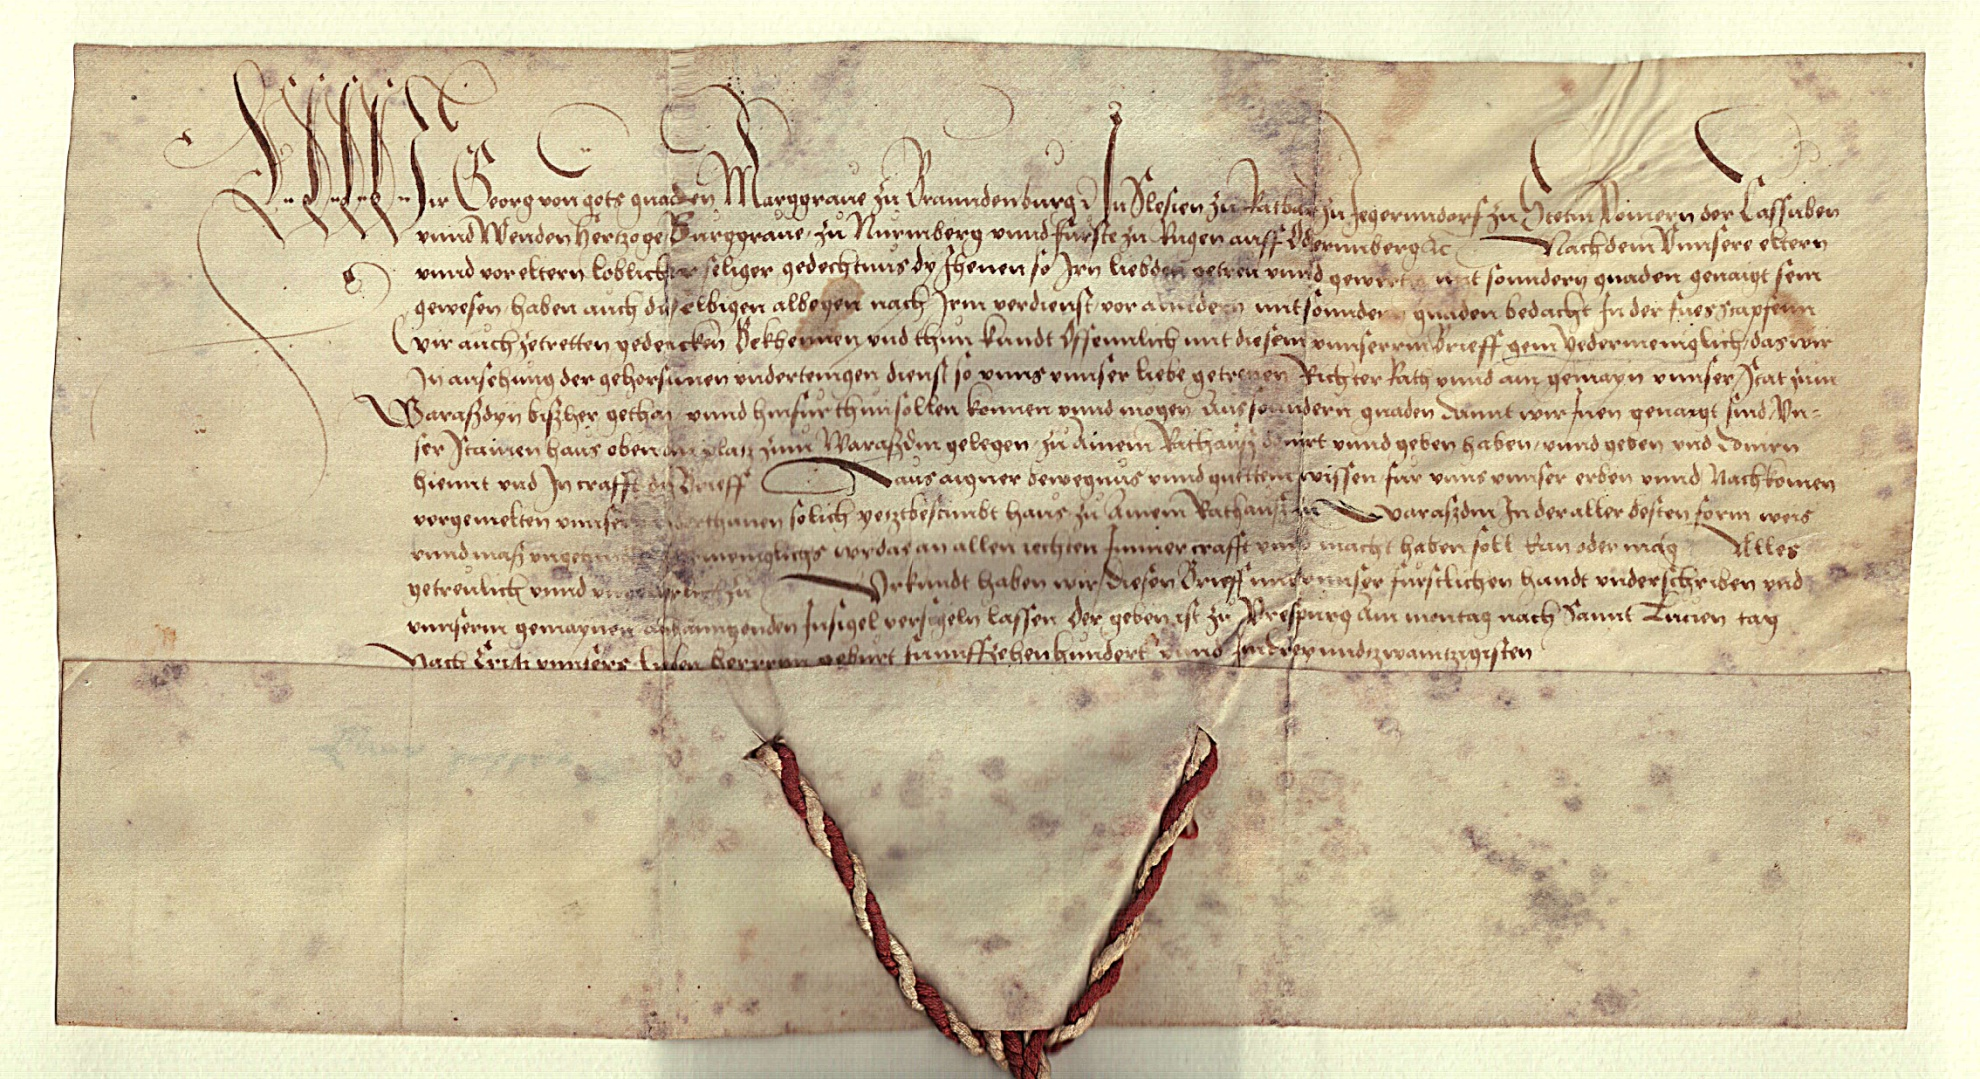 Wir Georg von gots gnaden Marggraue zu Branndenburg In Slesien zu Ratbar zu Jegernndorf zu Stetin Pomern der Cassuben
vnnd Wenden hertzoge Burggraue zu Nurmberg vnnd furste zu Rugen auff Odernnberg Nach dem Vnnsere eltern
vnnd vor eltern loblicher seliger gedechtnus dy Jhenen so Irn liebden getreu vnnd mit sonndern gnaden genaigt sein
gewesen haben auch dieselbigen albegen nach Irm verdienst vor anndern mit sonndern gnaden bedacht In der fuesstapfenn
Wir auch zetretten gedencken Bekhennen vnd thun kundt Offennlich mit diesem vnnserm Brieff gein Yedermeniglich das wir
In ansehung der gehorsamen vndertenigen dienst so vnns vnnser liebe getrewen Richter Rath vnnd ain gemayn vnnser Stat zum
Waraßdyn bißher gethan vnnd hinfur thun sollen konnen vnnd mogen Aus sonndern gnaden damit wir Inen genaigt sind Vn-
ser Stainen haus oben am platz zum Waraßdin gelegen zu Ainem Rathauß vnnd geben haben vnnd geben vnd
hiemit vnd In crafft ditz Brieff Aus aigner bewegnus vnnd guttem wissen fur vnns vnnser erben vnnd Nachkomen
vorgemelten vnnsern vnderthanen solich yetztbestimbt haus zu Ainem Rathauß zu Waraßdin In der aller besten form weis
vnnd maß meniglichs wy das an allen rechten Immer crafft vnnd macht haben soll kan oder mag Alles
getreulich vnnd vngeverlich zu Vrkundt haben wir diesen Brieff mit vnnser furstlichen handt vnderschriben vnd
vnnserm gemaynen anhanngenden Insigel versigeln lassen Der geben ist zu Prespurg Am montag nach Sannt Lucien tag
Nach Cristi vnnsers lieben herrnn geburt funnffzehenhundert vnnd Im drey vnnd zwaintzigisten